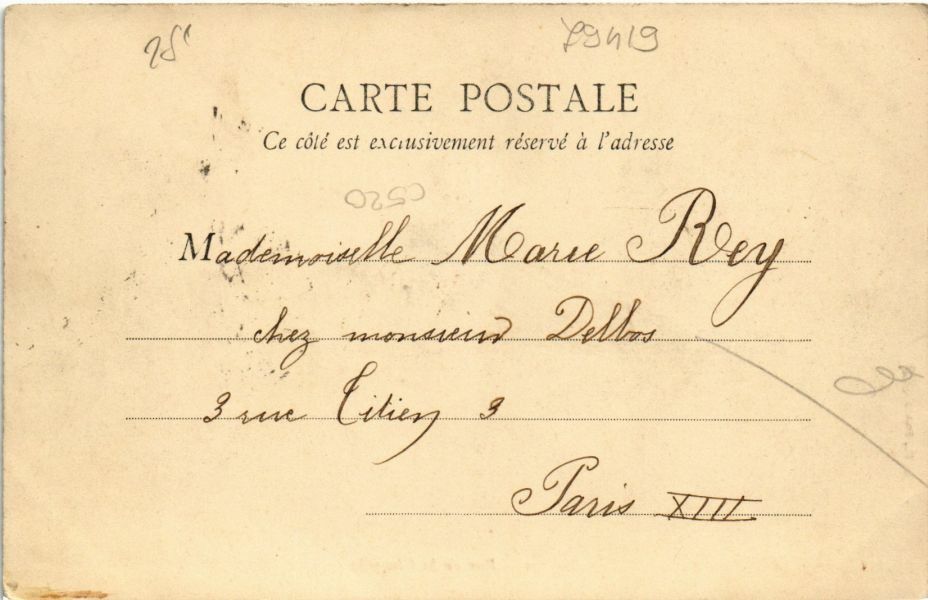 25
79419
CARTE POSTALE
Ce côté est exclusivement réservé à l'adresse
C520
Mademoiselle Marie Rey
chez monsieur Delbos
3 rue Titien 3
Paris XIII